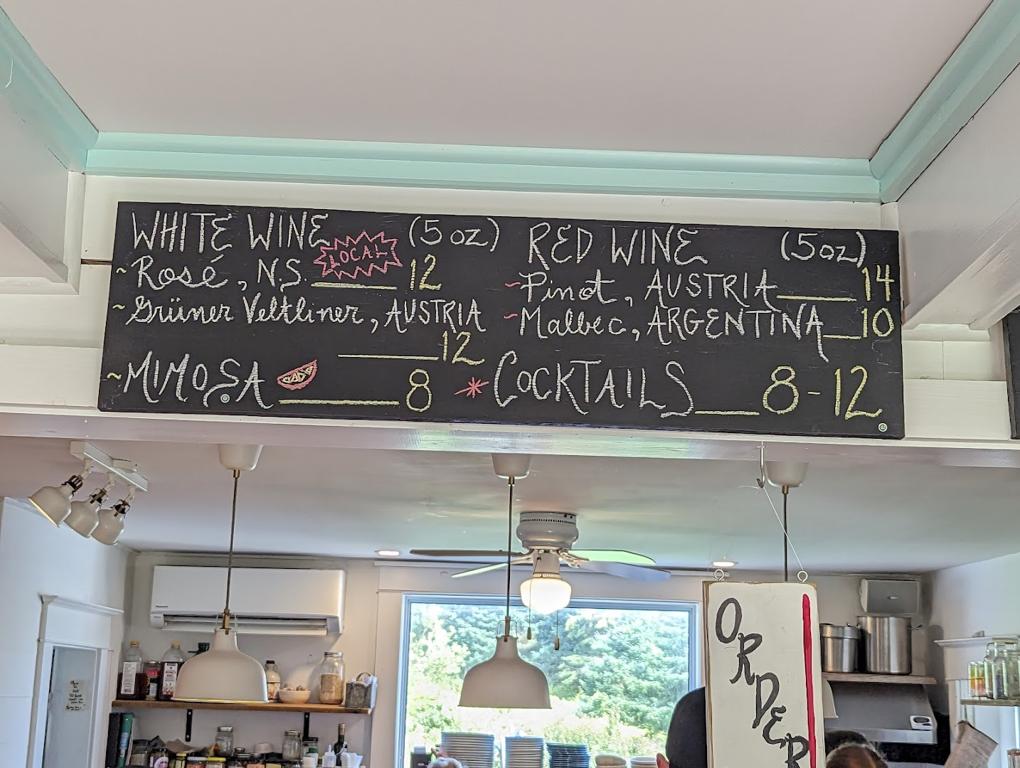 WHITE WINE (5 oz)
LOCAL
~Rosé, N.S. 12
~Grüner Veltliner, AUSTRIA
12
~MIMOSA 8
RED WINE (5oz)
~Pinot, AUSTRIA 14
~Malbec, ARGENTINA 10
*COCKTAILS 8-12
ORDER